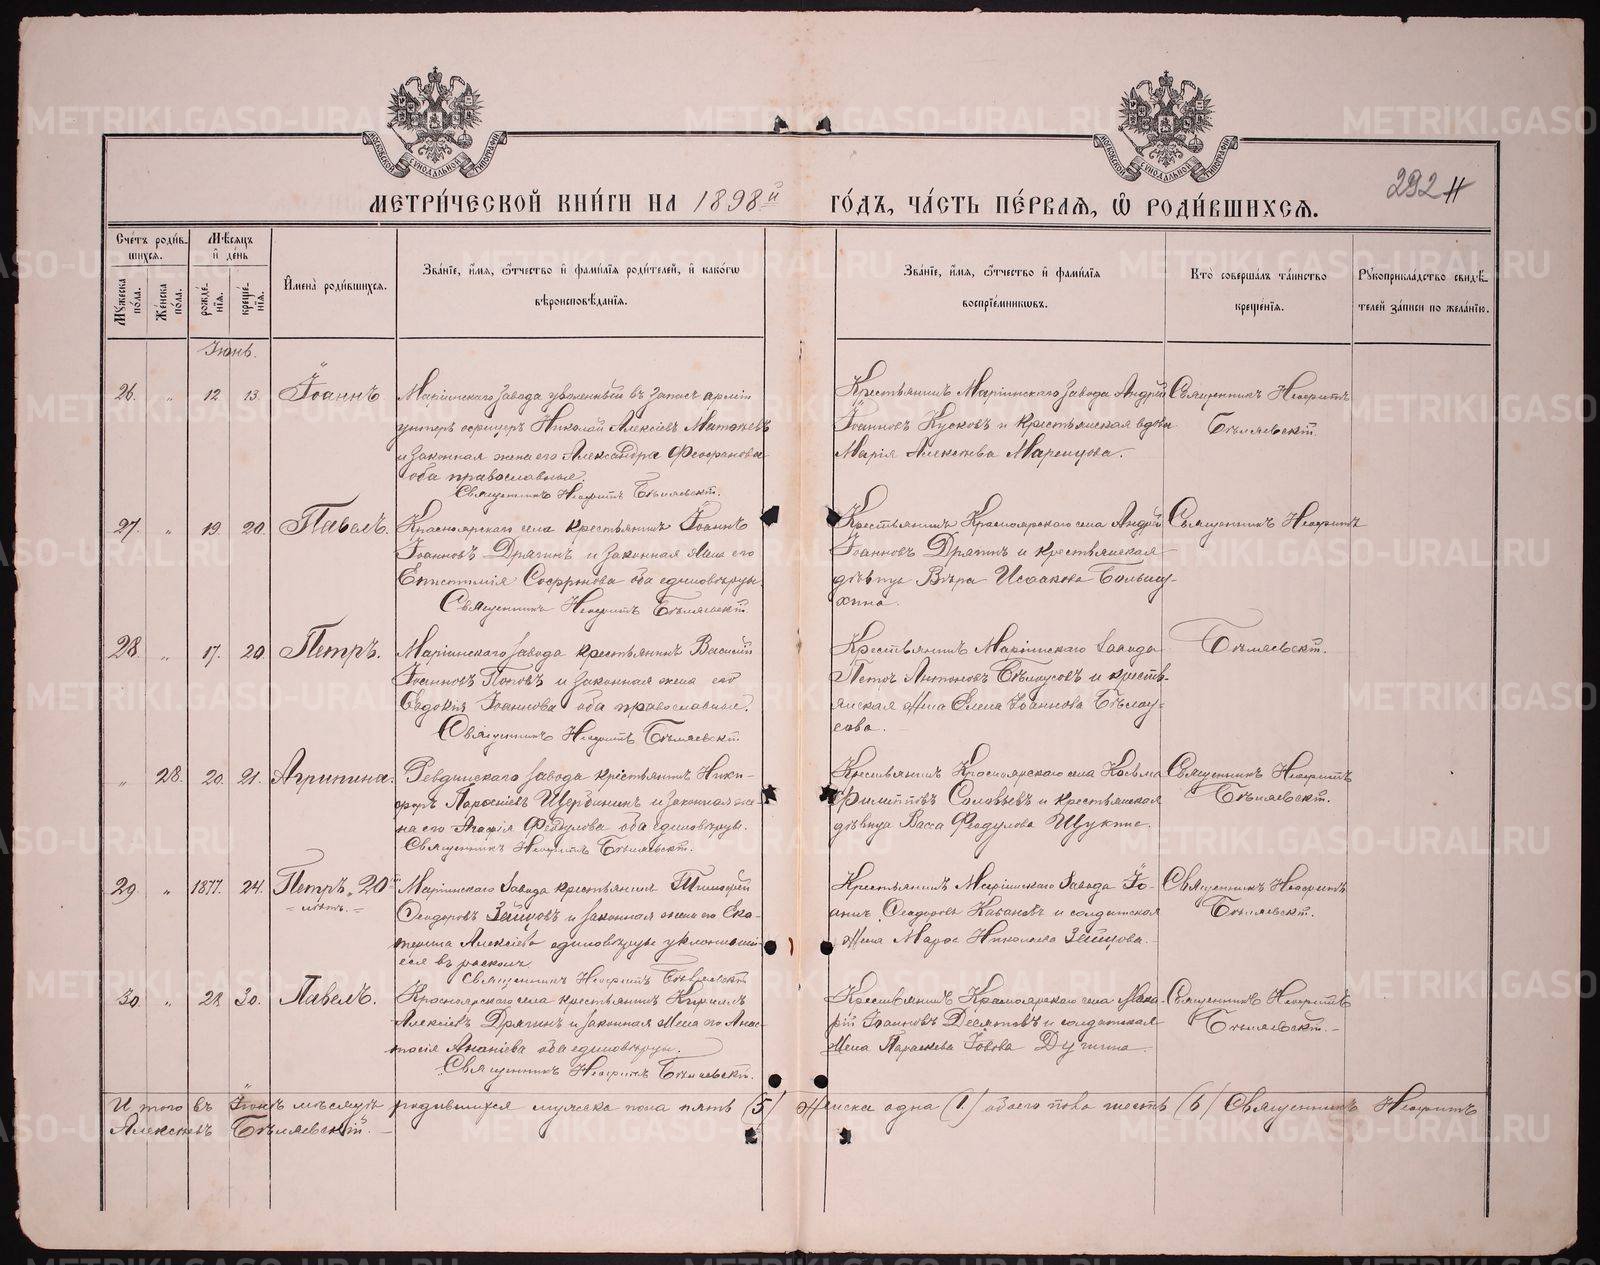 МЕТРИ́ЧЕСКОЙ КНИ́ГИ НА 1898й ГО́ДЪ, ЧА́СТЬ ПЕ́РВАЯ, Ѡ РОДИ́ВШИХСЯ.
292
Сче́тъ роди́в-
шихся.
Мѣ́сяцъ
и де́нь
Му́жеска
по́ла.
Же́нска
по́ла.
рожде́-
нія.
креще́-
нія.
Имена̀ роди́вшихся.
Зва́ніе, и́мя, ѻ҆́тчество и фами́лія роди́телей, и како́гѡ
вѣроисповѣ́данія.
Зва́ніе, и́мя, ѻ҆́тчество и фами́лія
воспрiе́мниковъ.
Кто̀ соверша́лъ та́инство
креще́нія.
Рꙋкоприкла́дство свидѣ́-
телей за́писи по жела́нію.
Іюнь.
26. „ 12 13. Іоаннъ
Маріинскаго завода уволенный въ запасъ арміи
унтеръ офицеръ Николай Алексіевъ
и законная жена его Александра Феофанова
оба православные.
Священникъ Неофитъ Бѣляевскій.
Крестьянинъ Маріинскаго завода Андрей
Іоанновъ Кусковъ и крестьянская вдова
Марія Алексіева
Священникъ Неофитъ
Бѣляевскій.
27. „ 19. 20. Павелъ.
Красноярскаго села крестьянинъ Іоаннъ
Іоанновъ Дрягинъ и законная жена его
Епистимія Софронова оба единовѣрцы.
Священникъ Неофитъ Бѣляевскій
Крестьянинъ Красноярскаго села Андрей
Іоанновъ Дрягинъ и крестьянская
дѣвица Вѣра Исаакова
Священникъ Неофитъ
28 „ 17. 20. Петръ.
Маріинскаго завода крестьянинъ Василій
Іоанновъ Поповъ и законная жена его
Евдокія Іоаннова оба православные.
Священникъ Неофитъ Бѣляевскій.
Крестьянинъ Маріинскаго завода
Петръ Антоновъ Бѣлоусовъ и кресть-
янская жена Елена Іоаннова Бѣлоу-
сова.
Бѣляевскій.
„ 28. 20. 21. Агрипина.
Ревдинскаго завода крестьянинъ Ники-
форъ Щербининъ и законная же-
на его Агафія Феодулова оба единовѣрцы.
Священникъ Неофитъ Бѣляевскій.
Крестьянинъ Красноярскаго села Косьма
Филипповъ Соловьевъ и крестьянская
дѣвица Васса Феодулова Щукина.
Священникъ Неофитъ
Бѣляевскій.
29 „ 1877. 24. Петръ. 20й
лѣтъ.
Маріинскаго завода крестьянинъ Тимофей
Феодоровъ Зайцовъ и законная жена его Ека-
терина Алексіева единовѣрцы уклонившіи-
еся въ расколъ.
Священникъ Неофитъ Бѣляевскій
Крестьянинъ Маріинскаго завода Іо-
аннъ Феодоровъ Кабановъ и солдатская
жена Николаева Зайцова.
Священникъ Неофитъ
Бѣляевскій.
30 „ 28. 30. Павелъ.
Красноярскаго села крестьянинъ Кириллъ
Алексіевъ Дрягинъ и законная жена его Анас-
тасія Ананіева оба единовѣрцы.
Священникъ Неофитъ Бѣляевскій.
Крестьянинъ Красноярскаго села Мака-
рій Іоанновъ Десятовъ и солдатская
жена Параскева Іовова
Священникъ Неофитъ
Бѣляевскій.
Итого въ Іюнѣ мѣсяцѣ родившихся мужеска пола пять (5) женска одна (1.) обоего пола шесть (6) Священникъ Неофитъ
Алексіевъ Бѣляевскій.
METRIKI.GASO-URAL.RU